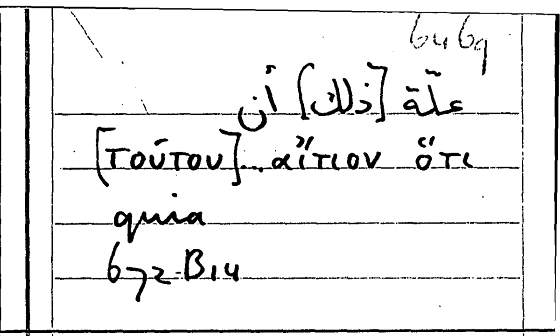 علّة [ذلك] أن
[τούτου]... αἴτιον ὅτι
quia
672 B14